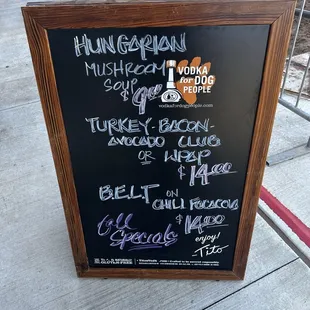 HUNGARIAN
MUSHROOM
SOUP
$9.00
VODKA
for DOG
PEOPLE
vodkafordogpeople.com
TURKEY-BACON-
AVOCADO CLUB
OR WRAP
$14.00
BELT ON
CHILI FOCACCIA
$14.00
Gill Specials
enjoy!
Tito